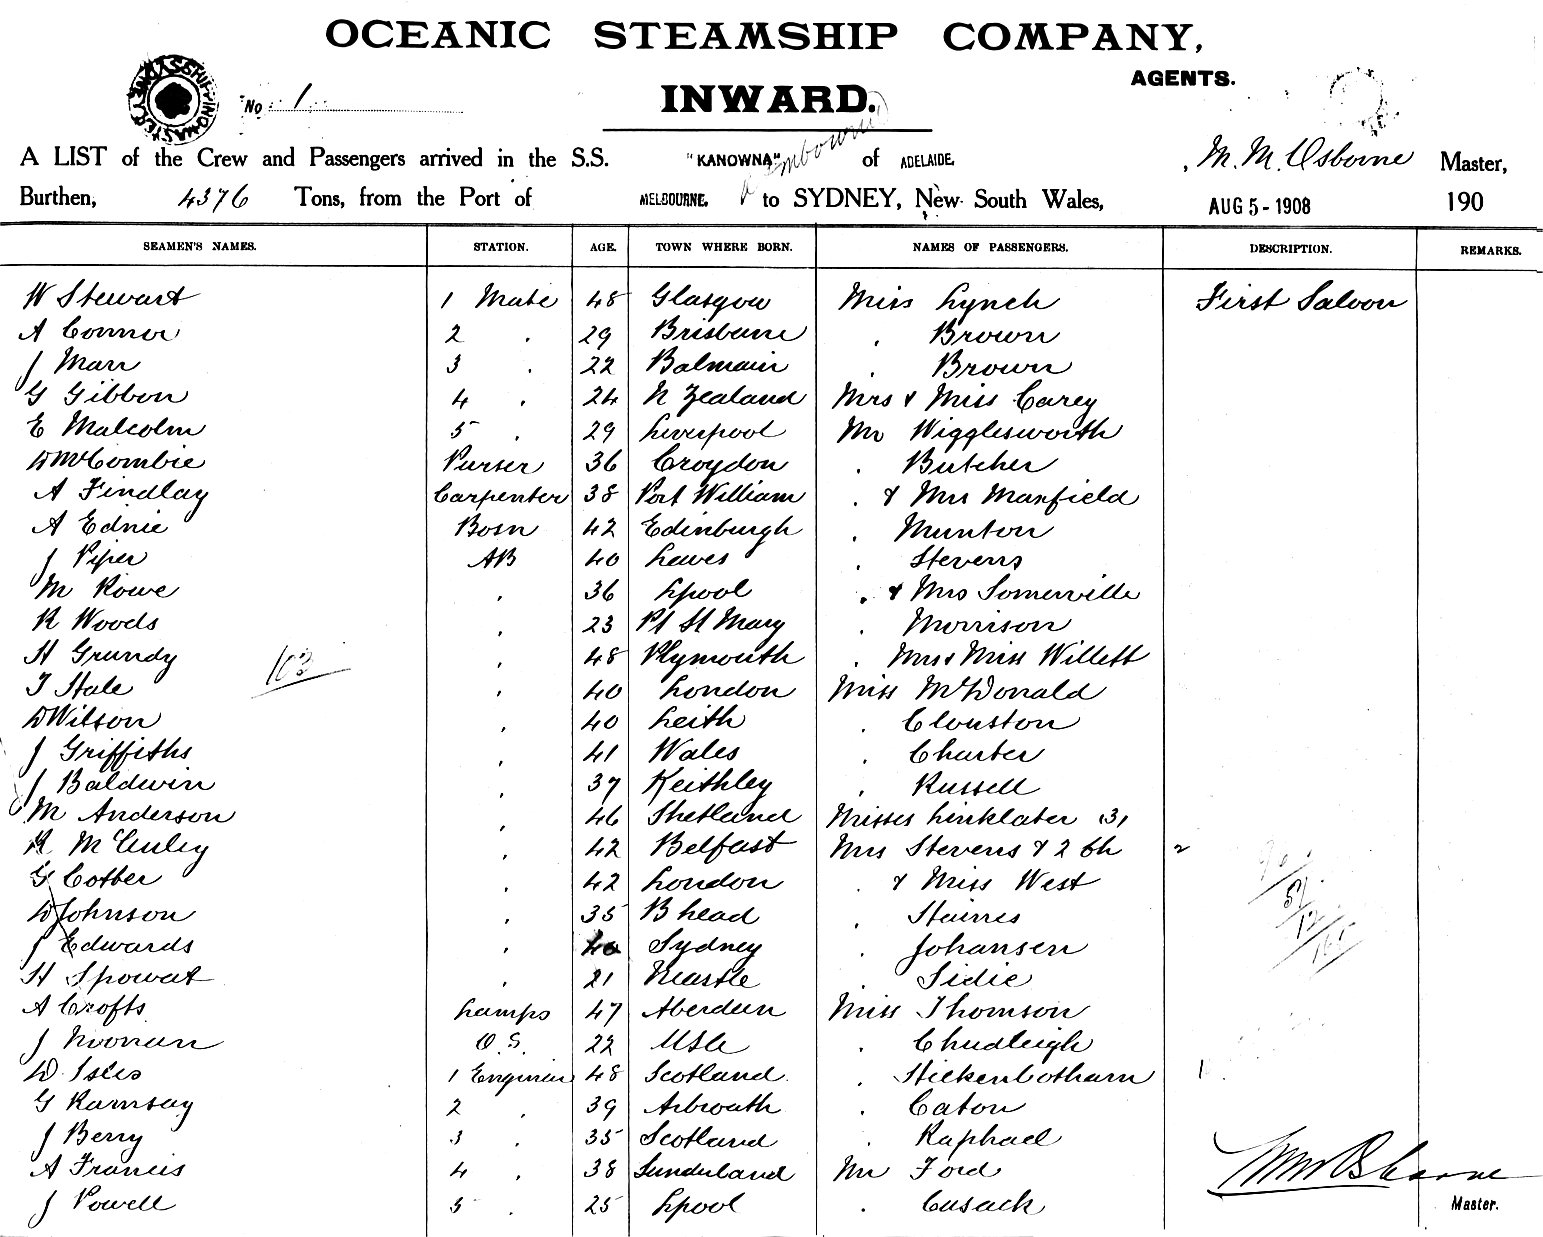 OCEANIC STEAMSHIP COMPANY,
AGENTS.
No 1
INWARD.
A LIST of the Crew and Passengers arrived in the S.S. "KANOWNA" of ADELAIDE, M. M. Osborne Master,
Burthen, 4376 Tons, from the Port of MELBOURNE. to SYDNEY, New South Wales, AUG 5 - 1908 190
SEAMEN'S NAMES. STATION. AGE. TOWN WHERE BORN. NAMES OF PASSENGERS. DESCRIPTION. REMARKS.
W Stewart 1 Mate 48 Glasgow Miss Lynch First Saloon
A Connor 2 . 29 Brisbane . Brown
J Marr 3 . 22 Balmain . Brown
G Gibbon 4 . 24 N Zealand Mrs & Miss Carey
E Malcolm 5 . 29 Liverpool Mr Wigglesworth
D McCombie Purser 36 Croydon . Butcher
A Findlay Carpenter 38 Port William . & Mrs Maxfield
A Ednie Bosn 42 Edinburgh . Munton
J Piper AB 40 Lewes . Stevens
M Rowe . 36 Lpool . & Mrs Somerville
R Woods . 23 Pt St Mary . Morrison
H Grundy 103 . 48 Plymouth . Mrs & Miss Willett
T Hale . 40 London Miss McDonald
D Wilson . 40 Leith . Clouston
J Griffiths . 41 Wales . Charter
J Baldwin . 37 Keithley . Russell
M Anderson . 46 Shetland Misses Linklater (3)
R McAuley . 42 Belfast Mrs Stevens & 2 Ch 2
G Cotter . 42 London . & Miss West
D Johnson . 35 B head . Haines
J Edwards . 40 Sydney . Johansen
H Spowat . 21 Ncastle . Sidie
A Crofts Lamps 47 Aberdeen Miss Thomson
J Noonan O.S. 22 . Chudleigh
D. Isles 1 Engineer 48 Scotland . Hickenbotham
G Ramsay 2 . 39 Arbroath . Caton
J Berry 3 . 35 Scotland . Raphael
A Francis 4 . 38 Sunderland Mr Ford
J Powell 5 . 25 Lpool . Cusack
Master.